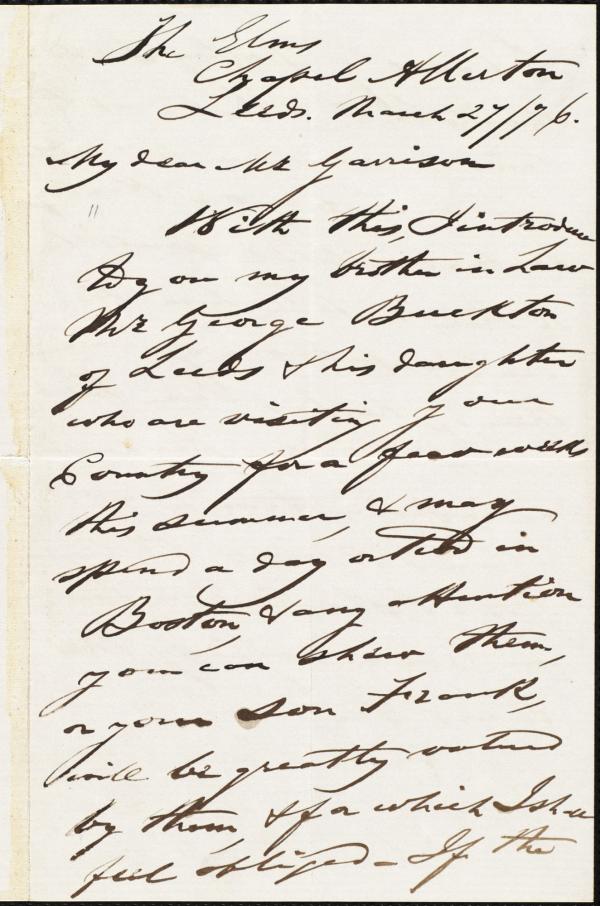 The Elms
Chapel Allerton
Leeds. March 27/76.
My dear Mr Garrison
With this, I introduce
to you my brother in Law
Mr George Buckton
of Leeds & his daughter
who are visiting your
Country for a few weeks
this summer, & may
spend a day or two in
Boston, & any attention
you can shew them,
or your son Frank,
will be greatly valued
by them, & for which I shall
feel obliged - If the